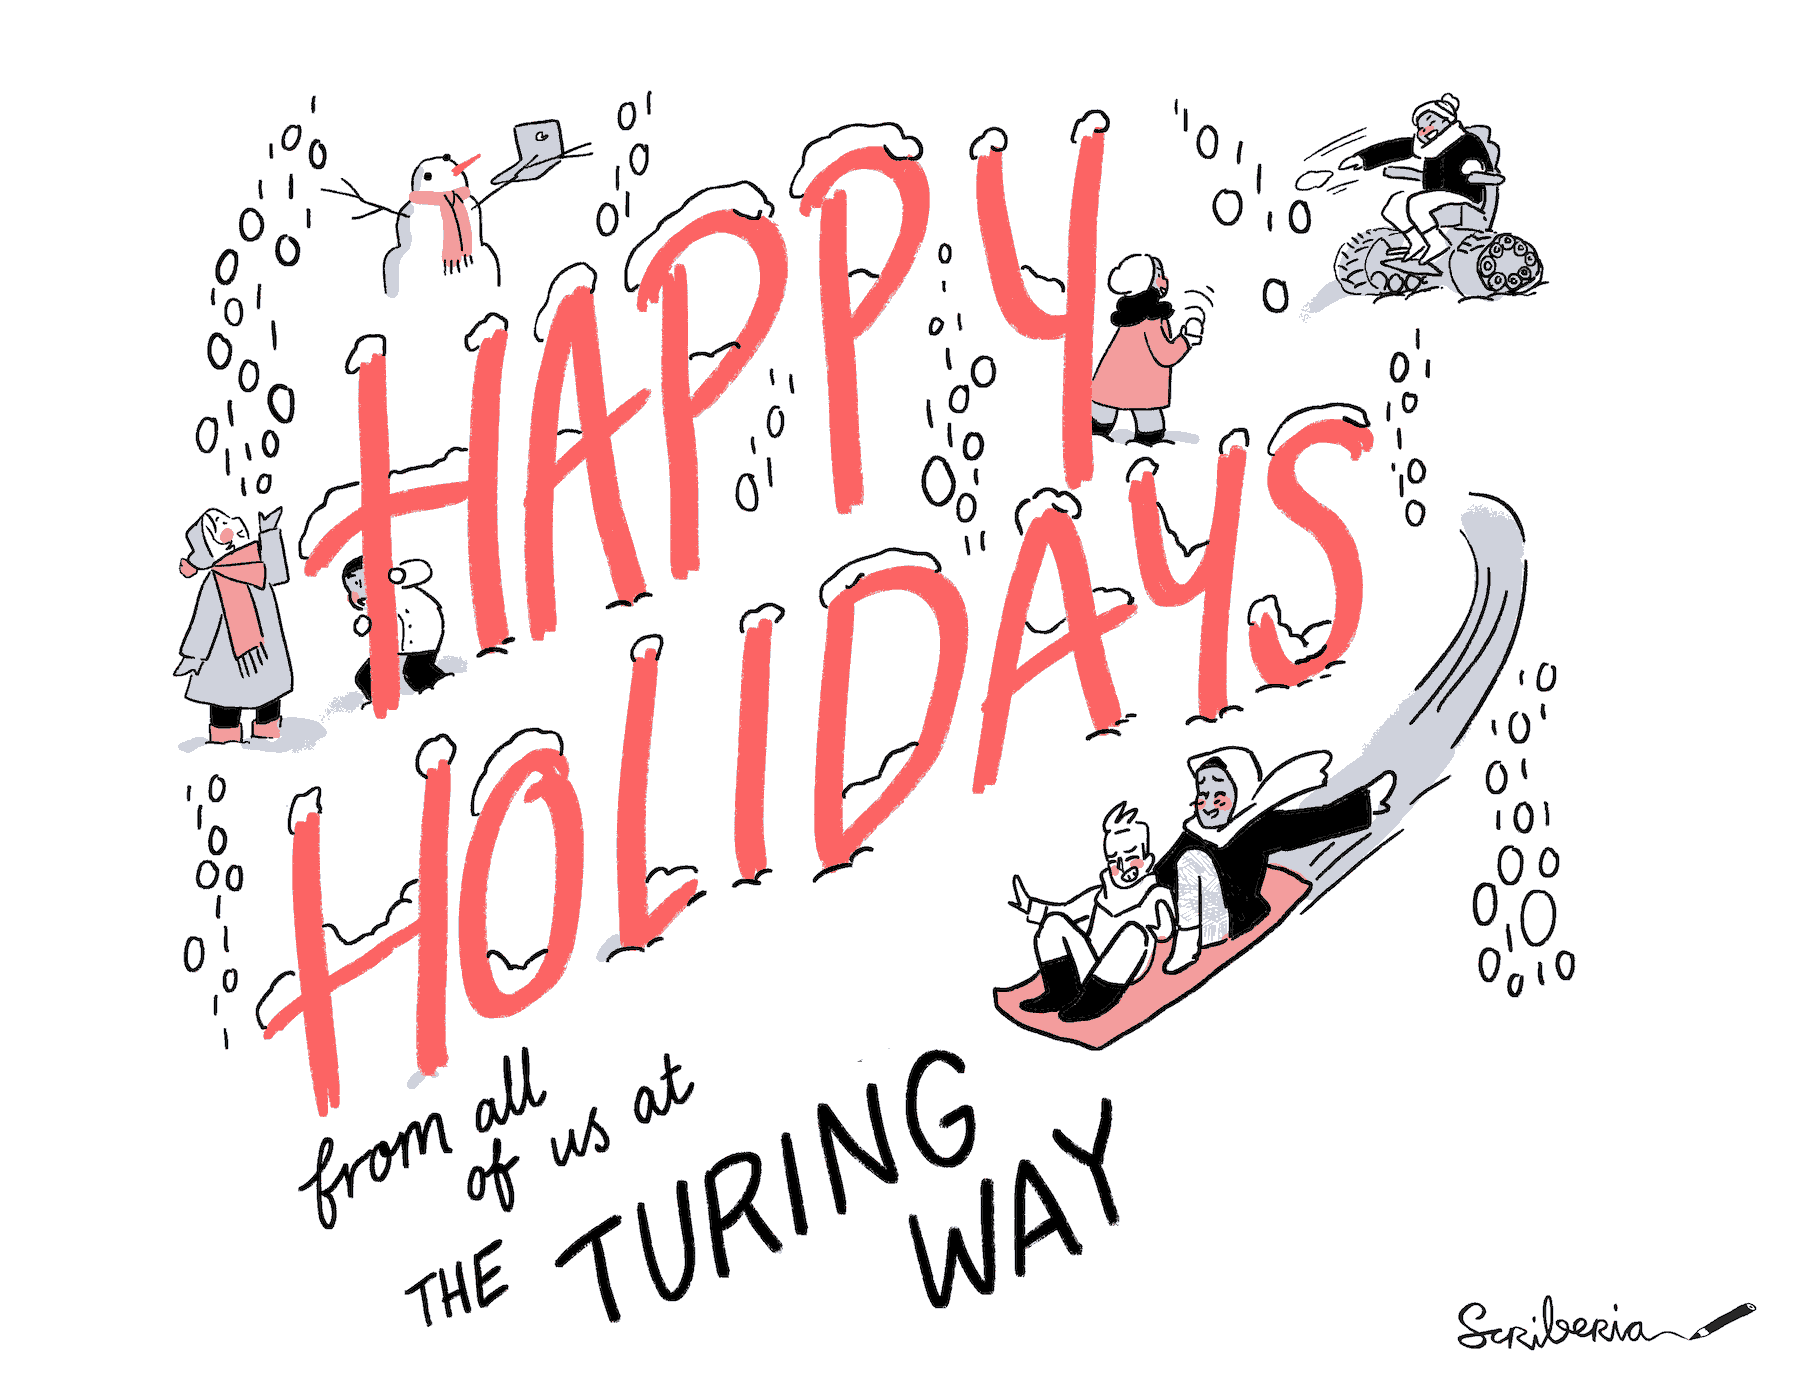 HAPPY
HOLIDAYS
from all
of us at
THE TURING
WAY
Scriberia